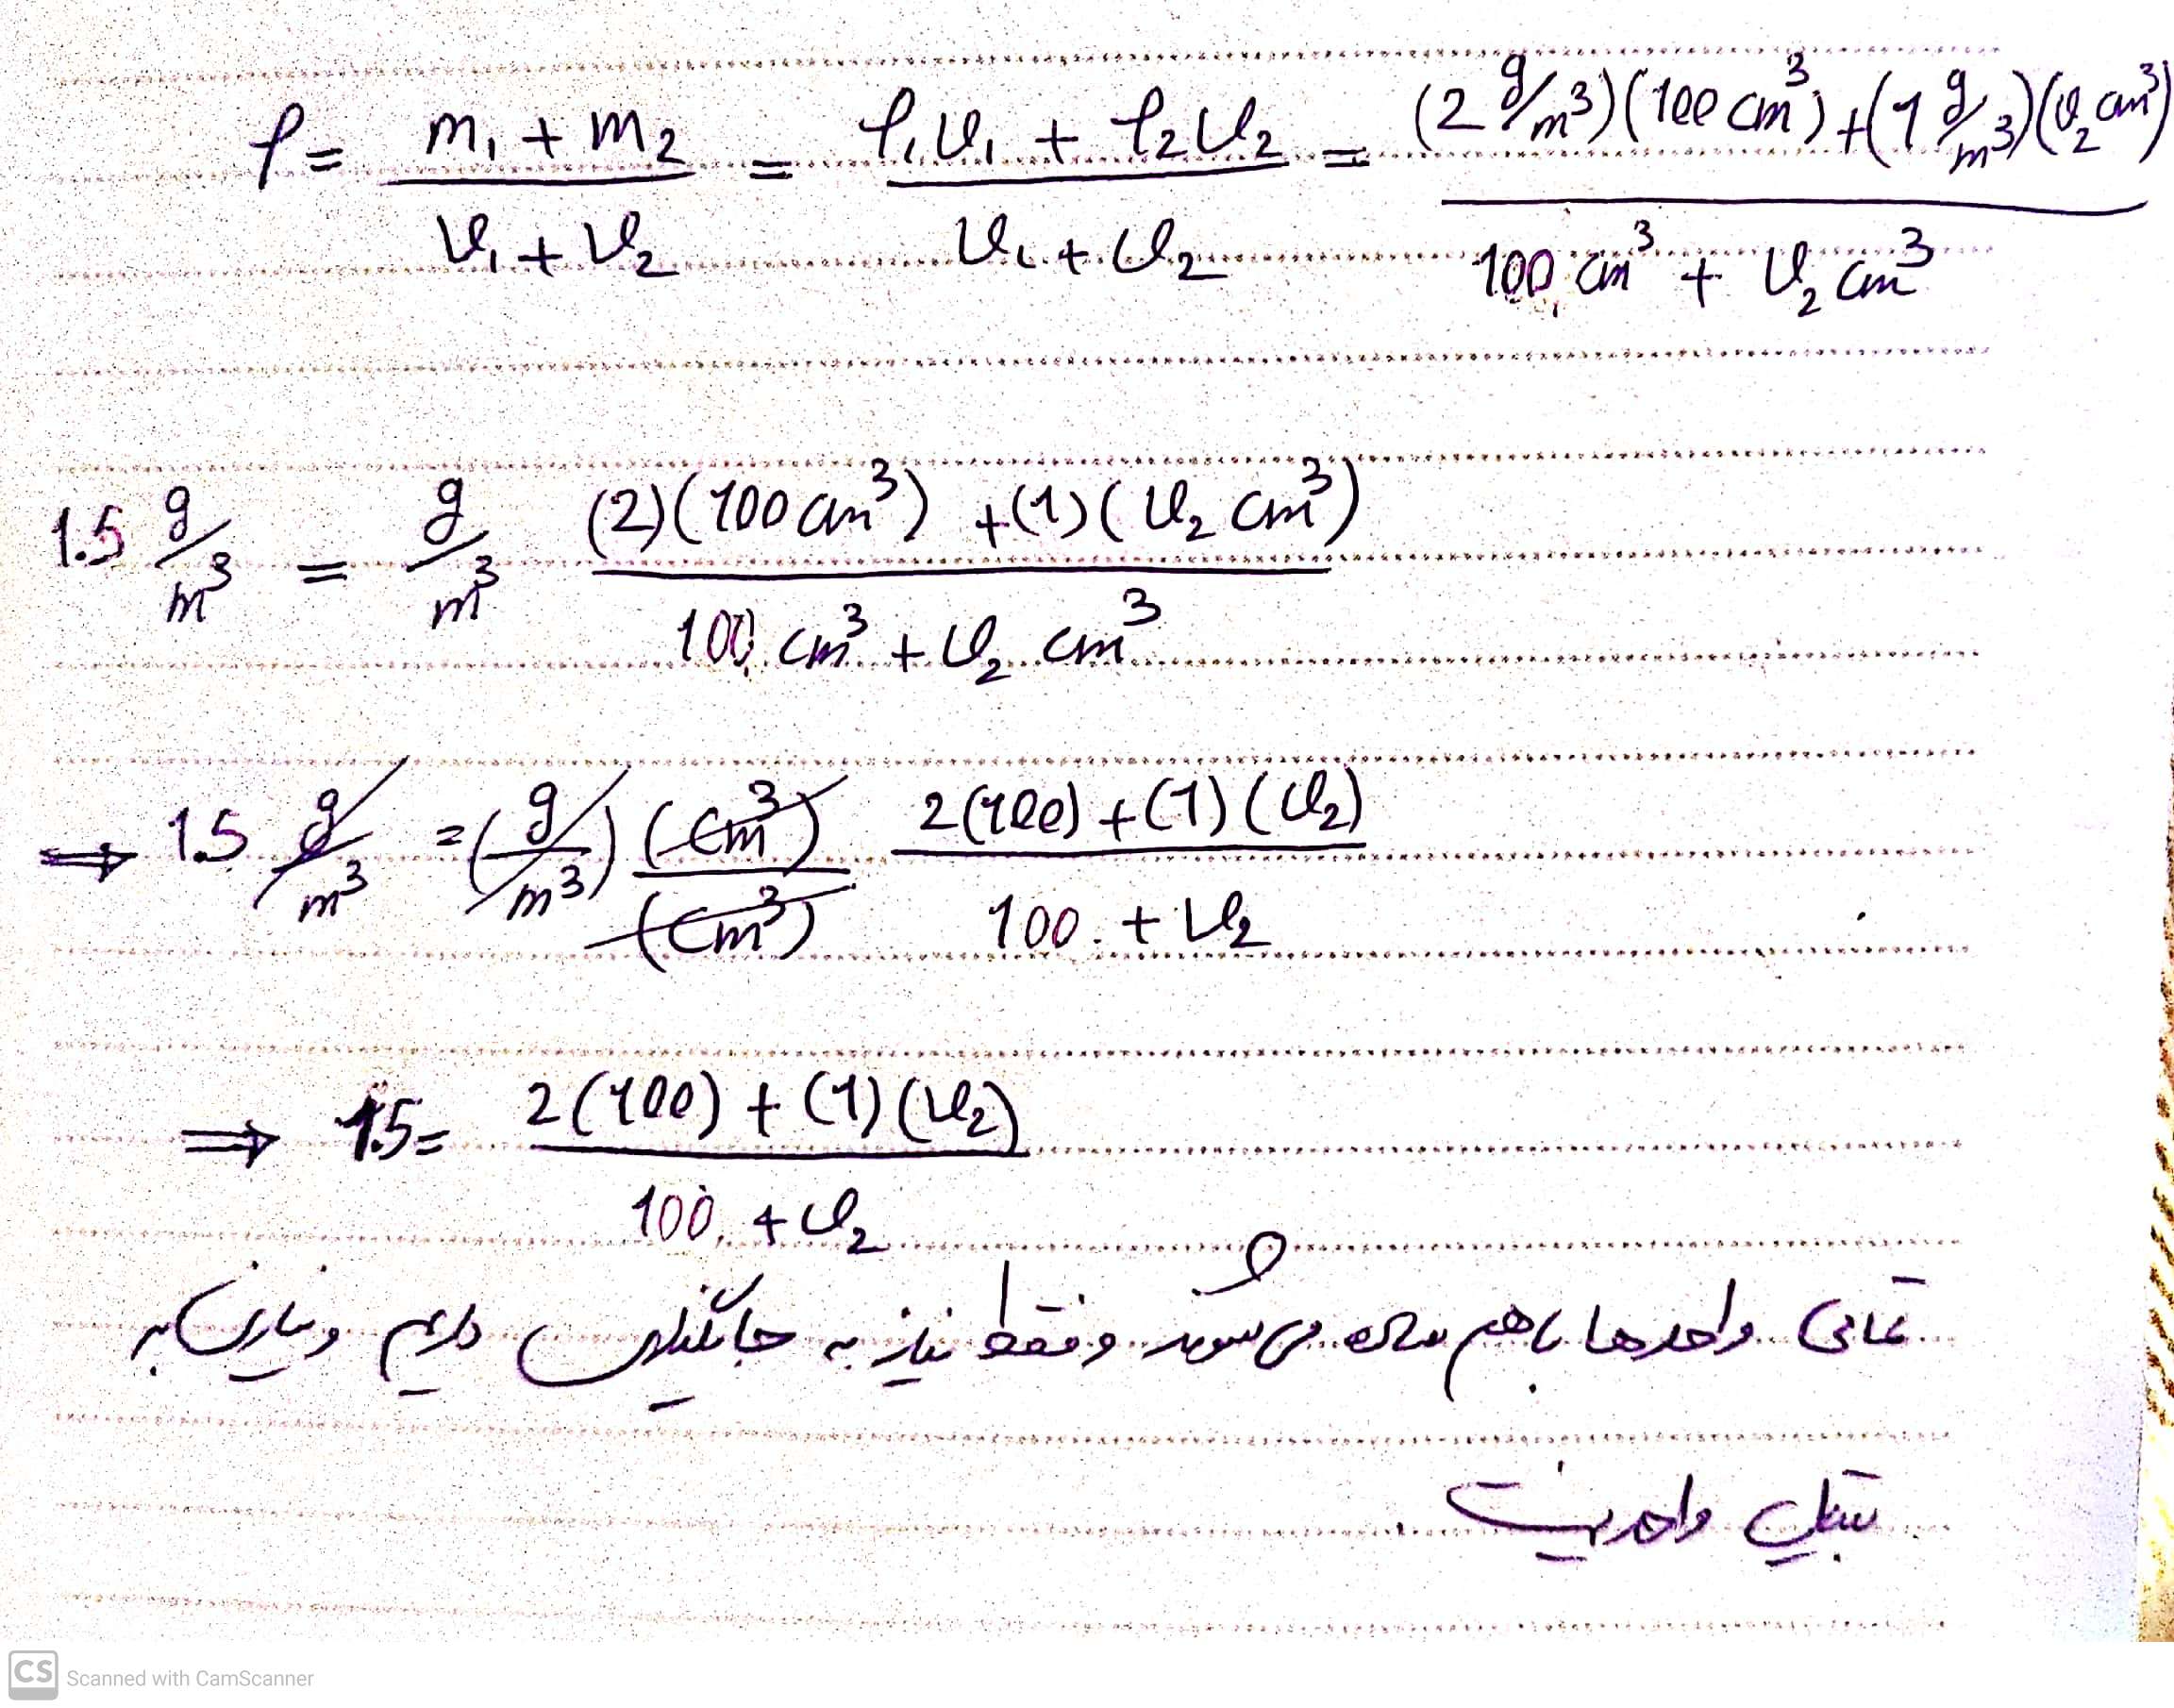 ρ = (m₁ + m₂)/(V₁ + V₂) = (ρ₁V₁ + ρ₂V₂)/(V₁ + V₂) = ((2 g/m³)(100 cm³) + (1 g/m³)(V₂ cm³))/(100 cm³ + V₂ cm³)
1.5 g/m³ = g/m³ ((2)(100 cm³) + (1)(V₂ cm³))/(100 cm³ + V₂ cm³)
⇒ 1.5 g/m³ = (g/m³) (cm³)/(cm³) (2(100) + (1)(V₂))/(100 + V₂)
⇒ 1.5 = (2(100) + (1)(V₂))/(100 + V₂)
تمامی واحدها باهم ساده می شوند و فقط نیاز به جایگذاری داریم و نیازی به
تبدیل واحد نیست
CS Scanned with CamScanner